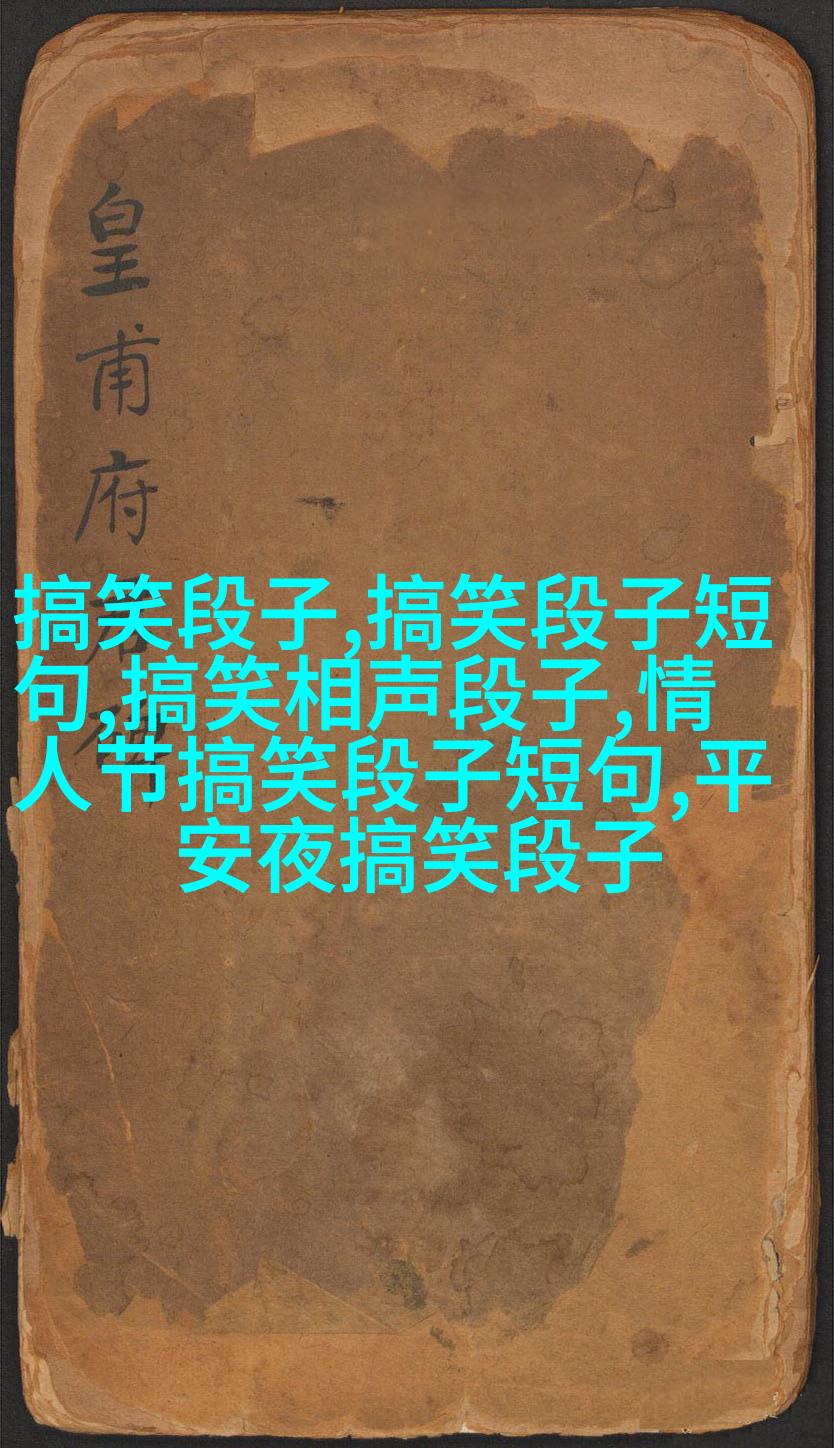 皇甫府君碑
搞笑段子,搞笑段子短
句,搞笑相声段子,情
人节搞笑段子短句,平
安夜搞笑段子